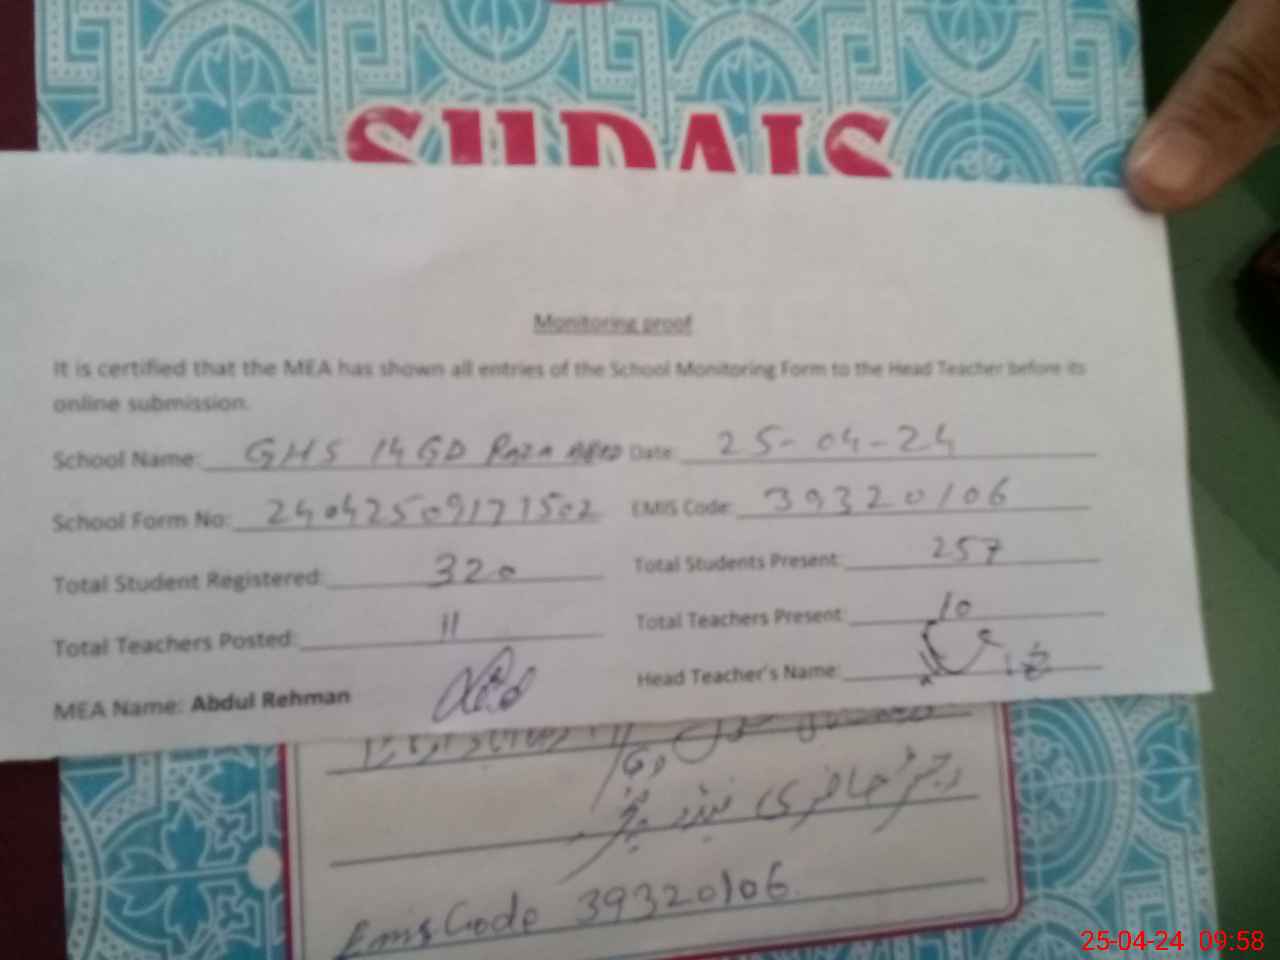 SUDAIS
Monitoring proof
It is certified that the MEA has shown all entries of the School Monitoring Form to the Head Teacher before its
online submission.
School Name: GHS 14 GD Raza Abad Date: 25-04-24
School Form No: 24042509171502 EMIS Code: 39320106
Total Student Registered: 320 Total Students Present: 257
Total Teachers Posted: 11 Total Teachers Present: 10
MEA Name: Abdul Rehman Head Teacher's Name:
رجسٹر حاضری
Emis Code 39320106
25-04-24 09:58